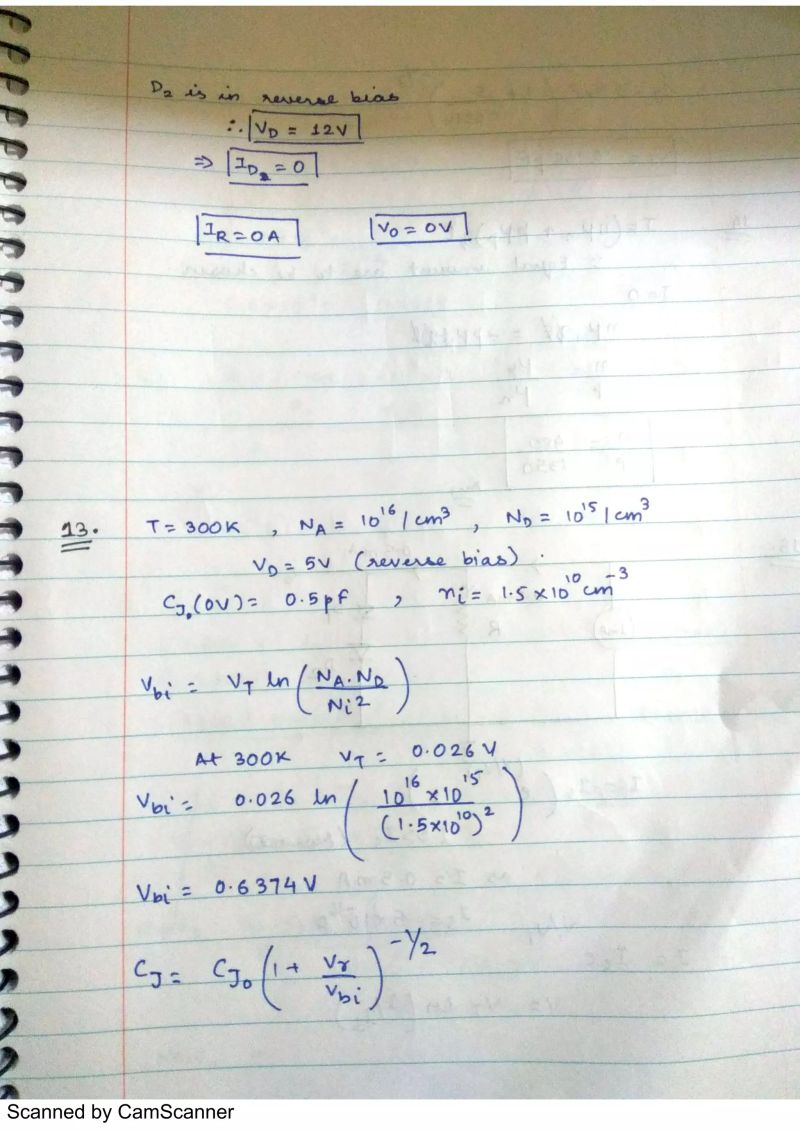 D₂ is in reverse bias
∴ V_D = 12V
⇒ I_D₂ = 0
I_R = 0A    V_0 = 0V
13. T = 300K , N_A = 10¹⁶/cm³ , N_D = 10¹⁵/cm³
V_D = 5V (reverse bias) .
C_J₀(0V) = 0.5pf , ni = 1.5×10¹⁰ cm⁻³
V_bi = V_T ln (N_A.N_D / Ni²)
At 300K V_T = 0.026V
V_bi = 0.026 ln (10¹⁶×10¹⁵ / (1.5×10¹⁰)²)
V_bi = 0.6374V
C_J = C_J₀ (1 + V_r / V_bi)^(-1/2)
Scanned by CamScanner